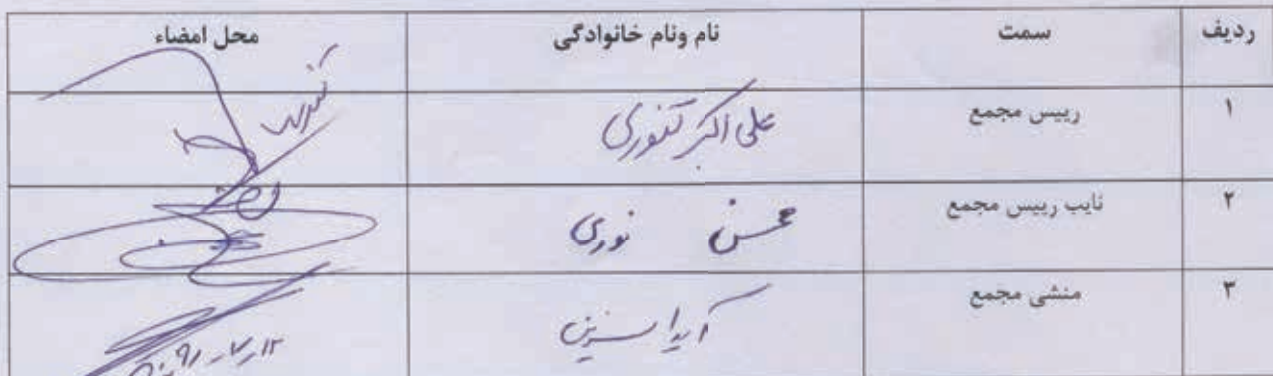 ردیف سمت نام ونام خانوادگی محل امضاء
۱ رییس مجمع علی اکبر تنوری
۲ نایب رییس مجمع محسن نوری
۳ منشی مجمع آیدا